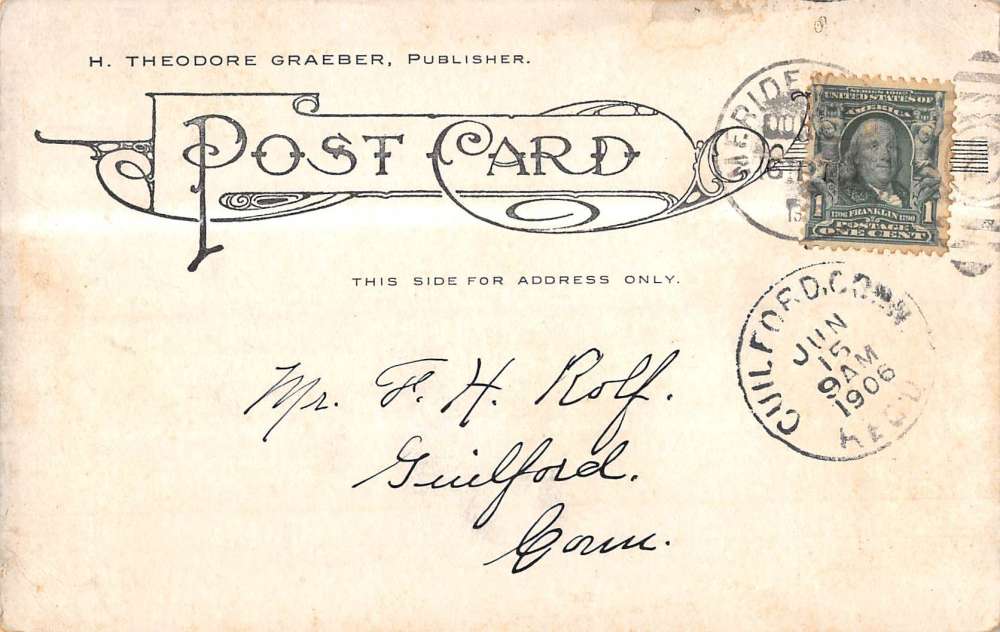 H. THEODORE GRAEBER, PUBLISHER.
POST CARD
THIS SIDE FOR ADDRESS ONLY.
MERIDE
SERIES 1902
UNITED STATES OF
AMERICA
1 FRANKLIN 1
POSTAGE
ONE CENT
GUILFORD, CONN
JUN
15
9 AM
1906
REC'D
Mr. F. H. Rolf.
Guilford.
Conn.